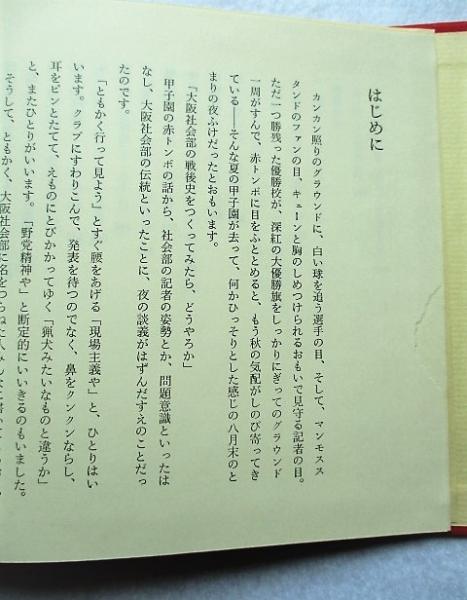 はじめに
カンカン照りのグラウンドに、白い球を追う選手の目、そして、マンモスス
タンドのファンの目、キューンと胸のしめつけられるおもいで見守る記者の目。
ただ一つ勝残った優勝校が、深紅の大優勝旗をしっかりにぎってのグラウンド
一周がすんで、赤トンボに目をふととめると、もう秋の気配がしのび寄ってき
ている――そんな夏の甲子園が去って、何かひっそりとした感じの八月末のと
まりの夜ふけだったとおもいます。
「大阪社会部の戦後史をつくってみたら、どうやろか」
甲子園の赤トンボの話から、社会部の記者の姿勢とか、問題意識といったは
なし、大阪社会部の伝統といったことに、夜の談義がはずんだすえのことだっ
たのです。
「ともかく行って見よう」とすぐ腰をあげる「現場主義や」と、ひとりはい
います。クラブにすわりこんで、発表を待つのでなく、鼻をクンクンならし、
耳をピンとたてて、えものにとびかかってゆく「猟犬みたいなものと違うか」
と、またひとりがいいます。「野党精神や」と断定的にいいきるのもいました。
そうして、ともかく、大阪社会部に名をつらねた人みんなに書いて